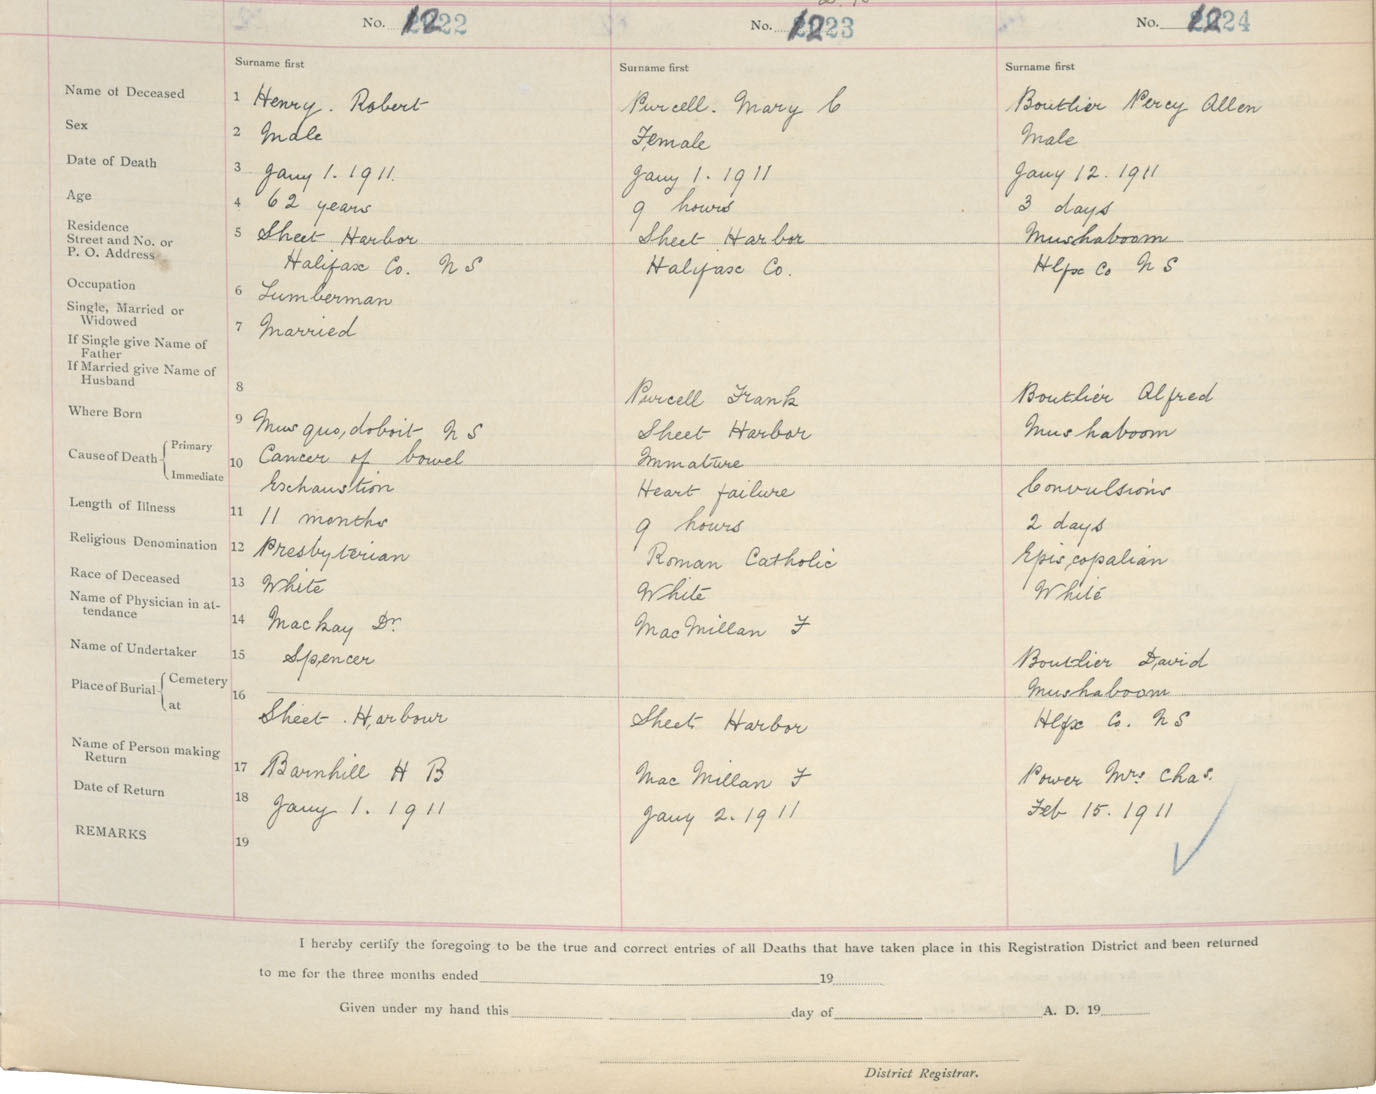 No. 1222 No. 1223 No. 1224
Surname first Surname first Surname first
Name of Deceased 1 Henry. Robert Purcell. Mary C Boutlier Percy Allen
Sex 2 Male Female Male
Date of Death 3 Jany 1. 1911. Jany 1. 1911 Jany 12. 1911
Age 4 62 years 9 hours 3 days
Residence
Street and No. or 5 Sheet Harbor Sheet Harbor Mushaboom
P. O. Address Halifax Co. N S Halifax Co. Hfx Co N S
Occupation 6 Lumberman
Single, Married or
Widowed 7 Married
If Single give Name of
Father
If Married give Name of
Husband 8 Purcell Frank Boutlier Alfred
Where Born 9 Musquodoboit N S Sheet Harbor Mushaboom
Cause of Death Primary 10 Cancer of bowel Immature
Immediate Exhaustion Heart failure Convulsions
Length of Illness 11 11 months 9 hours 2 days
Religious Denomination 12 Presbyterian Roman Catholic Episcopalian
Race of Deceased 13 White White White
Name of Physician in at-
tendance 14 Mackay Dr. MacMillan F
Name of Undertaker 15 Spencer Boutlier David
Place of Burial Cemetery 16 Mushaboom
at Sheet Harbour Sheet Harbor Hfx Co. N S
Name of Person making
Return 17 Barnhill H B MacMillan F Power Mrs Chas.
Date of Return 18 Jany 1. 1911 Jany 2. 1911 Feb 15. 1911
REMARKS 19
I hereby certify the foregoing to be the true and correct entries of all Deaths that have taken place in this Registration District and been returned
to me for the three months ended 19
Given under my hand this day of A. D. 19
District Registrar.